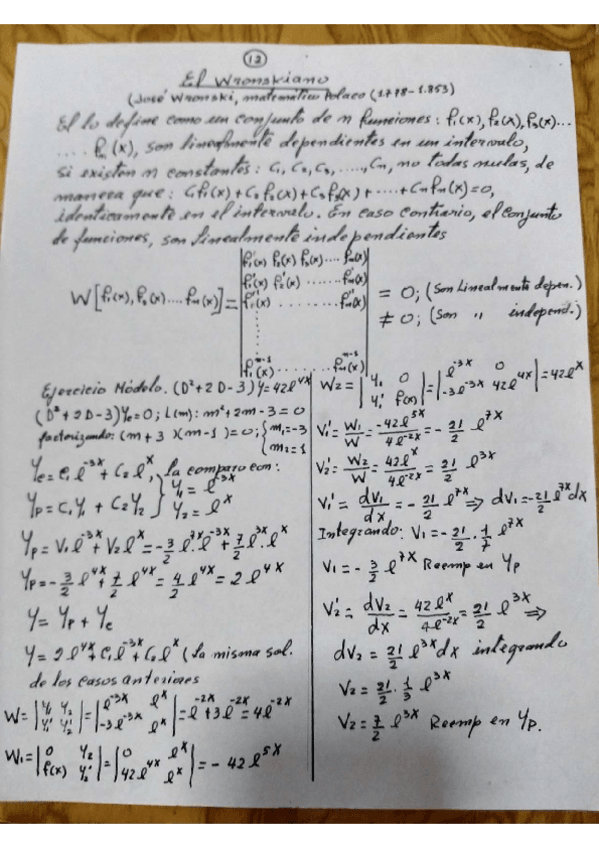 12
El Wronskiano
(José Wronski, matemático Polaco (1.778-1.853)
El lo define como un conjunto de n funciones: f₁(x), f₂(x), f₃(x)...
.... fₙ(x), son linealmente dependientes en un intervalo,
si existen n constantes: C₁, C₂, C₃, ....., Cₙ, no todas nulas, de
manera que: C₁f₁(x)+C₂f₂(x)+C₃f₃(x)+.....+Cₙfₙ(x)=0,
identicamente en el intervalo. En caso contrario, el conjunto
de funciones, son linealmente independientes
W[f₁(x), f₂(x)....fₙ(x)] = |f₁(x) f₂(x) f₃(x).... fₙ(x)|
|f₁'(x) f₂'(x) ........ fₙ'(x)|
|f₁''(x) ........ fₙ''(x)|
|f₁ⁿ⁻¹(x) ........ fₙⁿ⁻¹(x)|
= 0; (Son Linealmente depen.)
≠ 0; (Son " independ.)
Ejercicio Módelo. (D²+2D-3)y=42e^4x
(D²+2D-3)yc=0; L(m): m²+2m-3=0
factorizando: (m+3)(m-1)=0; {m₁=-3
m₂=1
yc=C₁e^-3x+C₂e^x, la comparo con:
yp=C₁y₁+C₂y₂ } y₁=e^-3x
y₂=e^x
yp=V₁e^-3x+V₂e^x=-3/2 e^7x.e^-3x+7/2 e^3x.e^x
yp=-3/2 e^4x+7/2 e^4x=4/2 e^4x=2e^4x
y=yp+yc
y=2e^4x+C₁e^-3x+C₂e^x (la misma sol.
de los casos anteriores
W=|y₁ y₂|=|e^-3x e^x|=e^-2x+3e^-2x=4e^-2x
|y₁' y₂'| |-3e^-3x e^x|
W₁=|0 y₂|=|0 e^x|=-42e^5x
|f(x) y₂'| |42e^4x e^x|
W₂=|y₁ 0|=|e^-3x 0|=42e^x
|y₁' f(x)| |-3e^-3x 42e^4x|
V₁'=W₁/W=-42e^5x/4e^-2x=-21/2 e^7x
V₂'=W₂/W=42e^x/4e^-2x=21/2 e^3x
V₁'=dV₁/dx=-21/2 e^7x⇒dV₁=-21/2 e^7x dx
Integrando: V₁=-21/2.1/7 e^7x
V₁=-3/2 e^7x Reemp en yp
V₂'=dV₂/dx=42e^x/4e^-2x=21/2 e^3x ⇒
dV₂=21/2 e^3x dx integrando
V₂=21/2.1/3 e^3x
V₂=7/2 e^3x Reemp en yp.